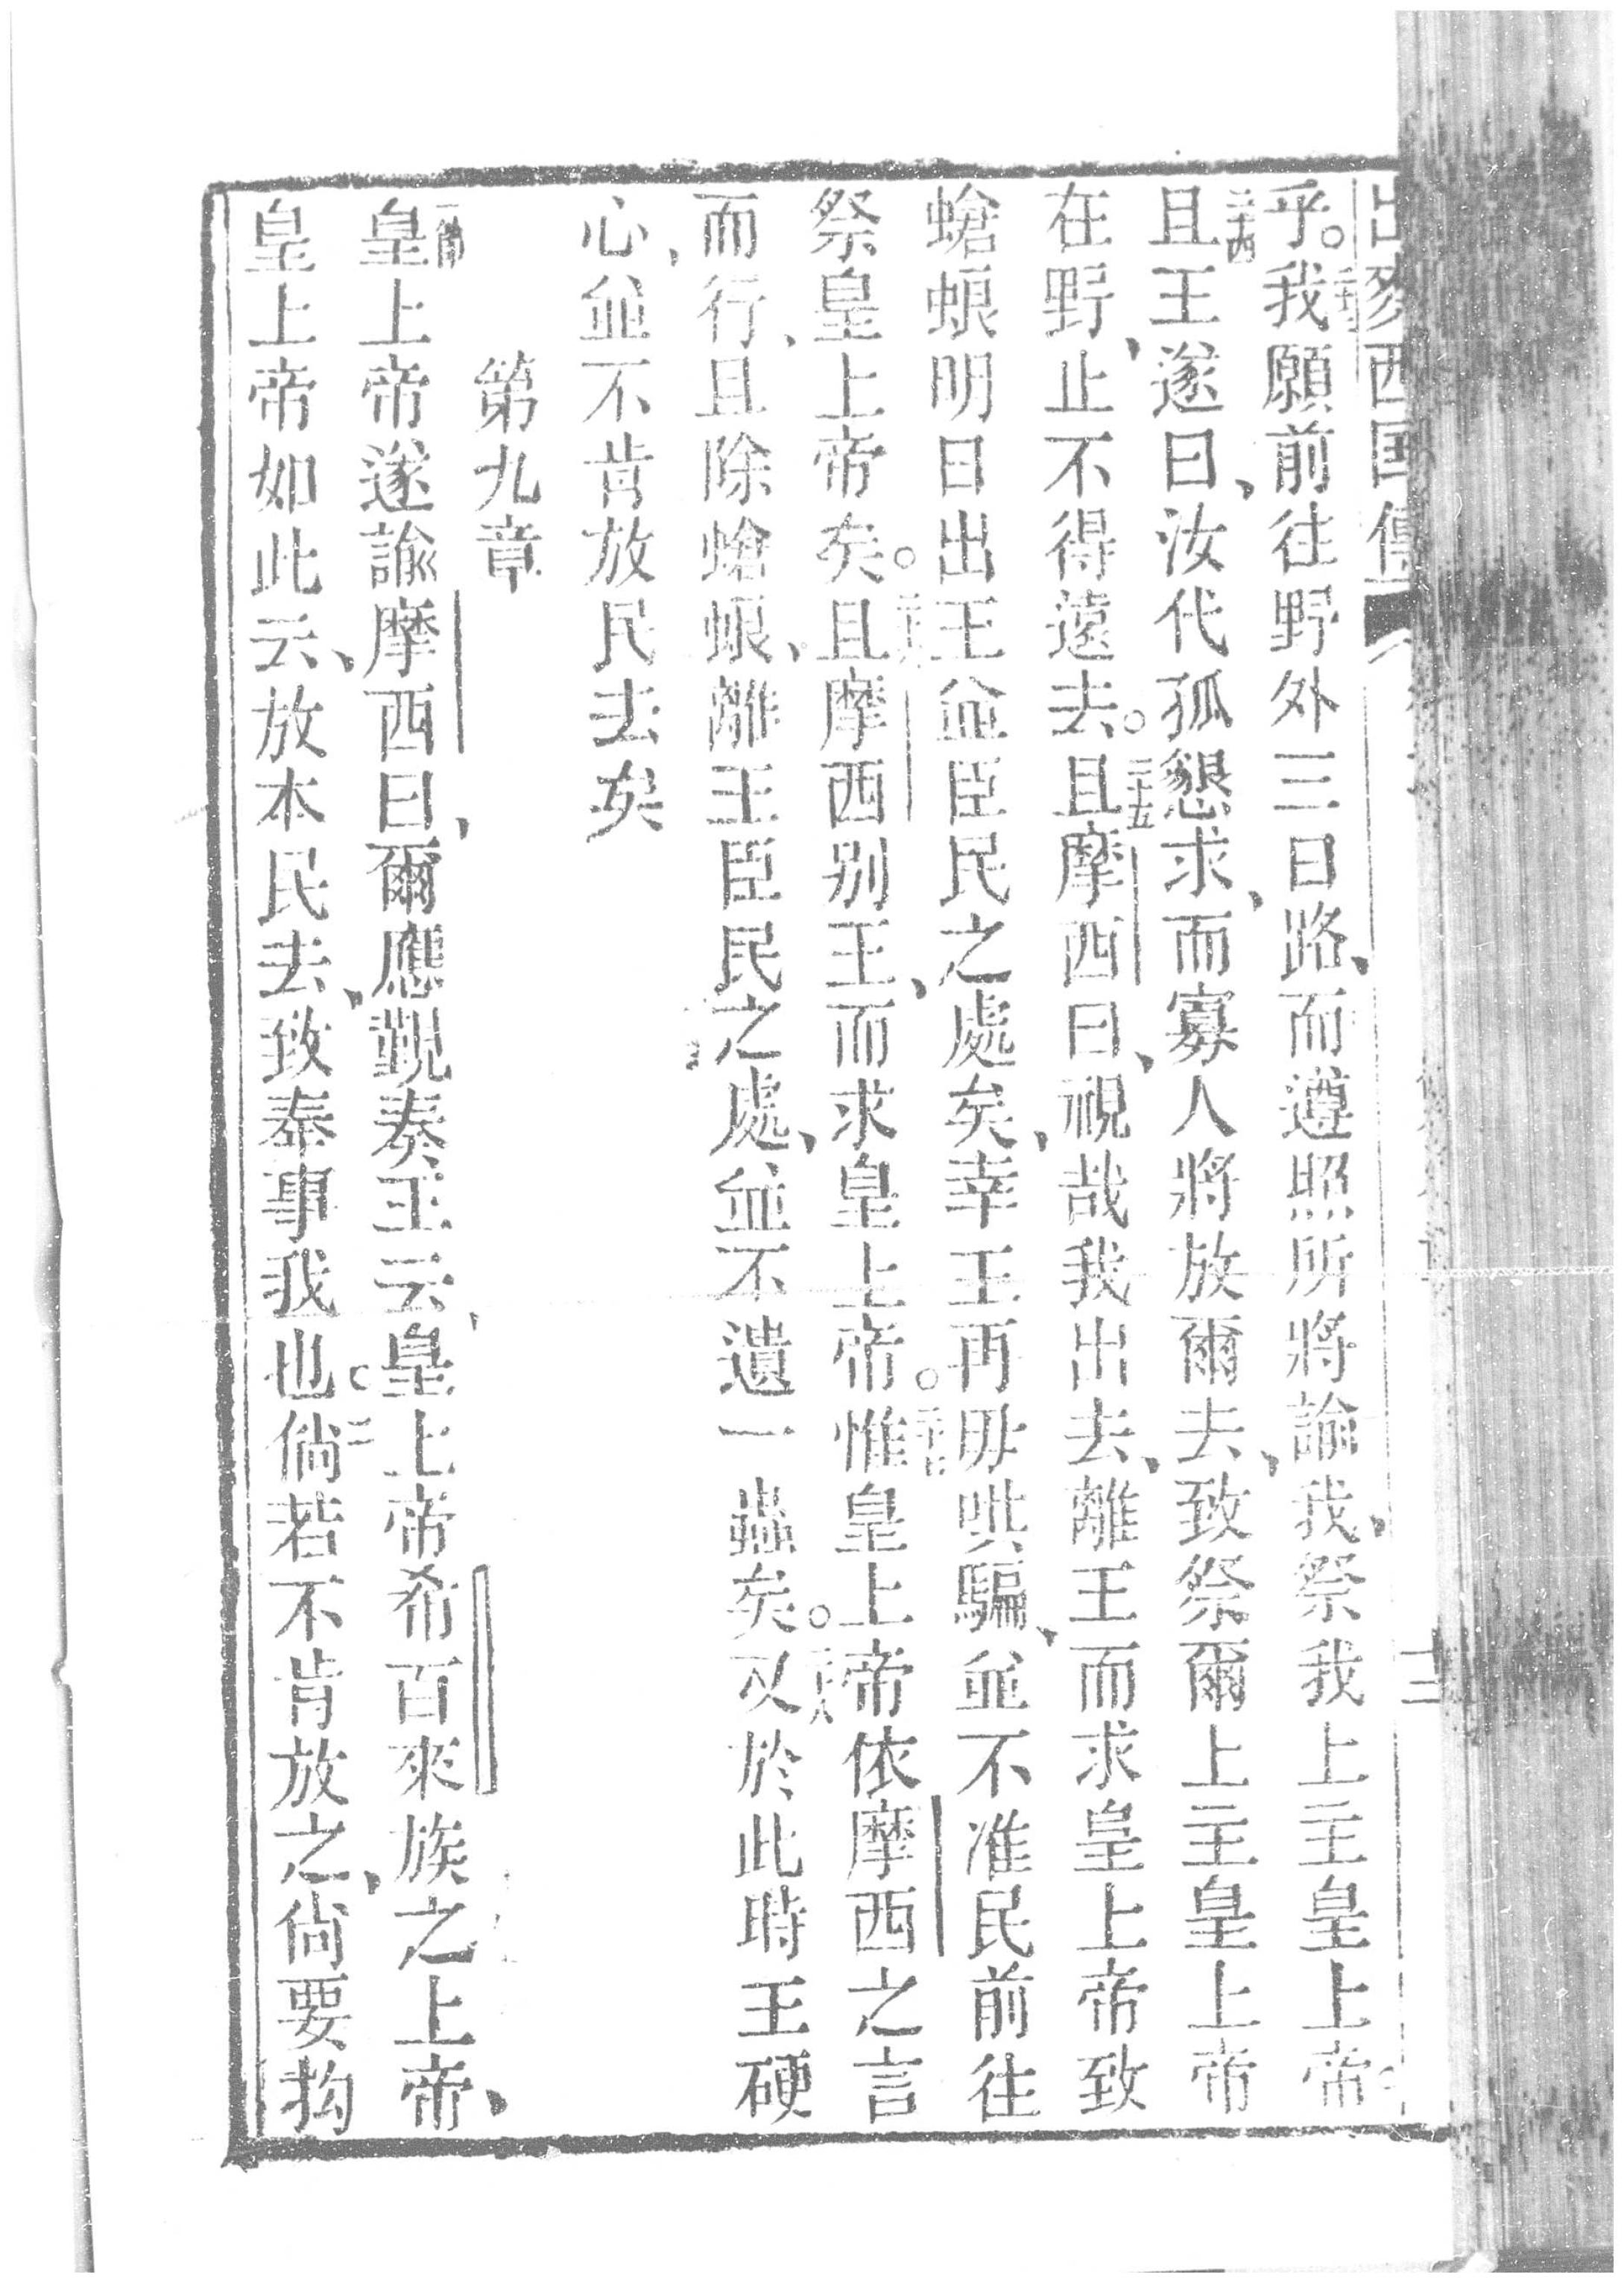 出麥西国傳
乎。我願前往野外三日路、而遵照所將諭我、祭我上主皇上帝
二十四且王遂曰、汝代孤懇求、而寡人將放爾去、致祭爾上主皇上帝
在野、止不得遠去。二十五且摩西曰、視哉我出去、離王而求皇上帝致
螥蜋明日出王並臣民之處矣、幸王再毋哄騙、並不准民前往
祭皇上帝矣。且摩西別王、而求皇上帝。惟皇上帝依摩西之言
而行、且除螥蜋、離王臣民之處、並不遺一蟲矣。又於此時王硬
心、並不肯放民去矣
第九章
皇上帝遂諭摩西曰、爾應覲奏王云、皇上帝希百來族之上帝、
皇上帝如此云、放本民去、致奉事我也。二倘若不肯放之、尙要拘
十二